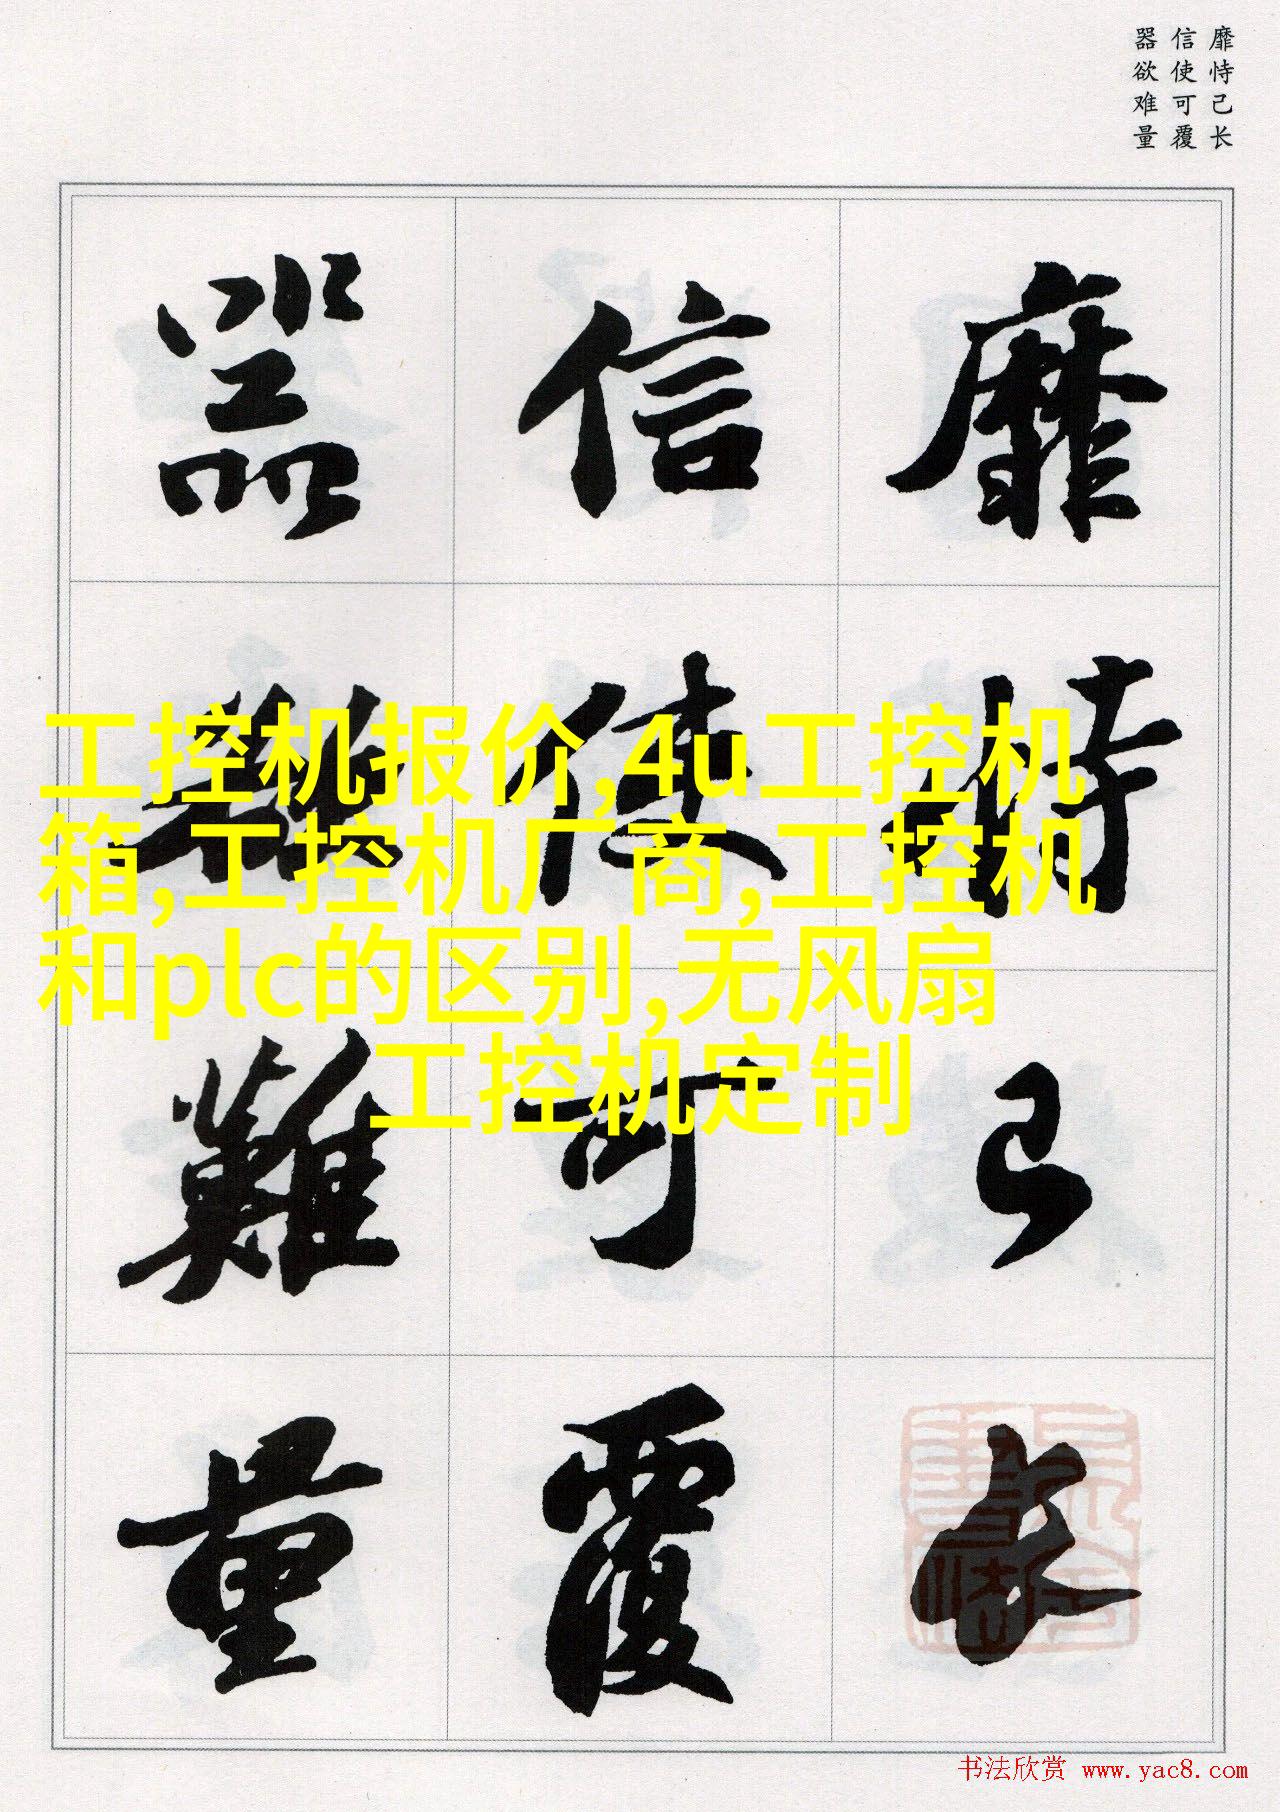 靡恃己长
信使可覆
器欲难量
靡恃己长
信使可覆
器欲難量
工控机报价,4u工控机
箱,工控机厂商,工控机
和plc的区别,无风扇
工控机定制
书法欣赏 www.yac8.com